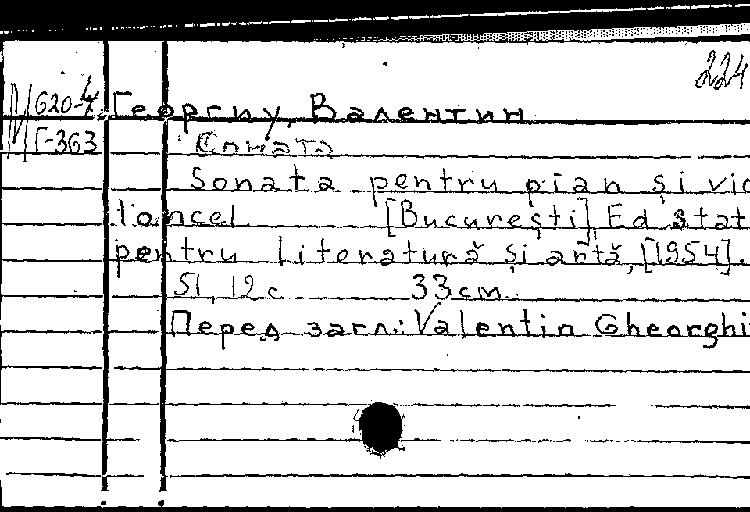 224
М 620-4 Георгиу, Валентин
Г-363 Соната
Sonata pentru pian și vio
loncel [București], Ed. stat
pentru literatură și artă, [1954].
51, 12 с 33 см.
Перед загл.: Valentin Gheorghi